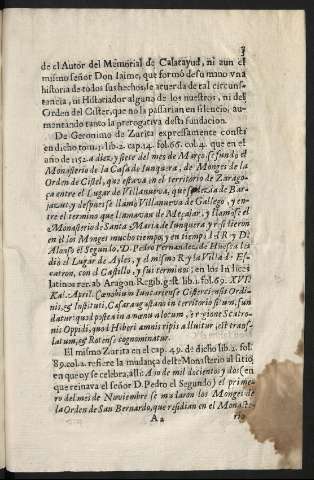 3
de el Autor del Memorial de Calatayud, ni aun el
mismo señor Don Iaime, que formò de su mano vna
historia de todos sus hechos, le acuerda de tal circuns-
tancia, ni Historiador alguna de los nuestros, ni del
Orden del Cister, que no la passarian en silencio, au-
mentando tanto la prerogativa desta fundacion.
De Geronimo de Zurita expressamente consta
en dicho tom. 1. lib. 2. cap. 14. fol. 66. col. 4. que en el
año de 1152. a diez y siete del mes de Março se fundò el
Monasterio de la Casa de Iunquera, de Monges de la
Orden de Cistel, que estava en el territorio de Zarago-
ça entre el Lugar de Villanueva, que se dezia de Bur-
jazut, y despues se llamò Villanueva de Gallego, y en-
tre el termino que llamavan de Mezalar, y llamose el
Monasterio de Santa Maria de Iunquera, y residieron
en el los Monges mucho tiempo, y en tiempo del R. y Dõ
Alonso el Segundo, D. Pedro Fernandez, de Huesca les
diò el Lugar de Ayles, y el mismo Rey la Villa de Es-
catron, con el Castillo, y sus terminos; en los Indices
latinos rer. ab Aragon. Regib. gest. lib. 1. fol. 69. XVI
Kal. April. Cœnobium Iuncariense Cisterciensis Ordi-
nis, & Instituti, Cæsaraugustani in territorio situm, fun-
datur, quod postea in amænu a locum, è regione Scatro-
nis Oppidi, quod Hiberi amnis ripis alluitur, est trans-
latum, & Rotense cognominatur.
El mismo Zurita en el cap. 49. de dicho lib. 2. fol.
89. col. 2. refiere la mudança deste Monasterio al sitio
en que oy se celebra, alli: Año de mil docientos y dos (en
que reinava el señor D. Pedro el Segundo) el prime-
ro del mes de Noviembre se mudaron los Monges de
la Orden de San Bernardo, que residian en el Monaste-
A 2 rio